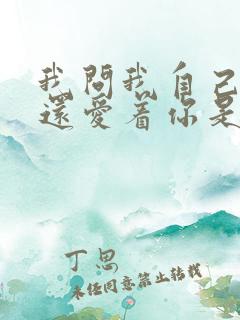 我問我自己
還愛着你是
丁思
未经同意禁止转载